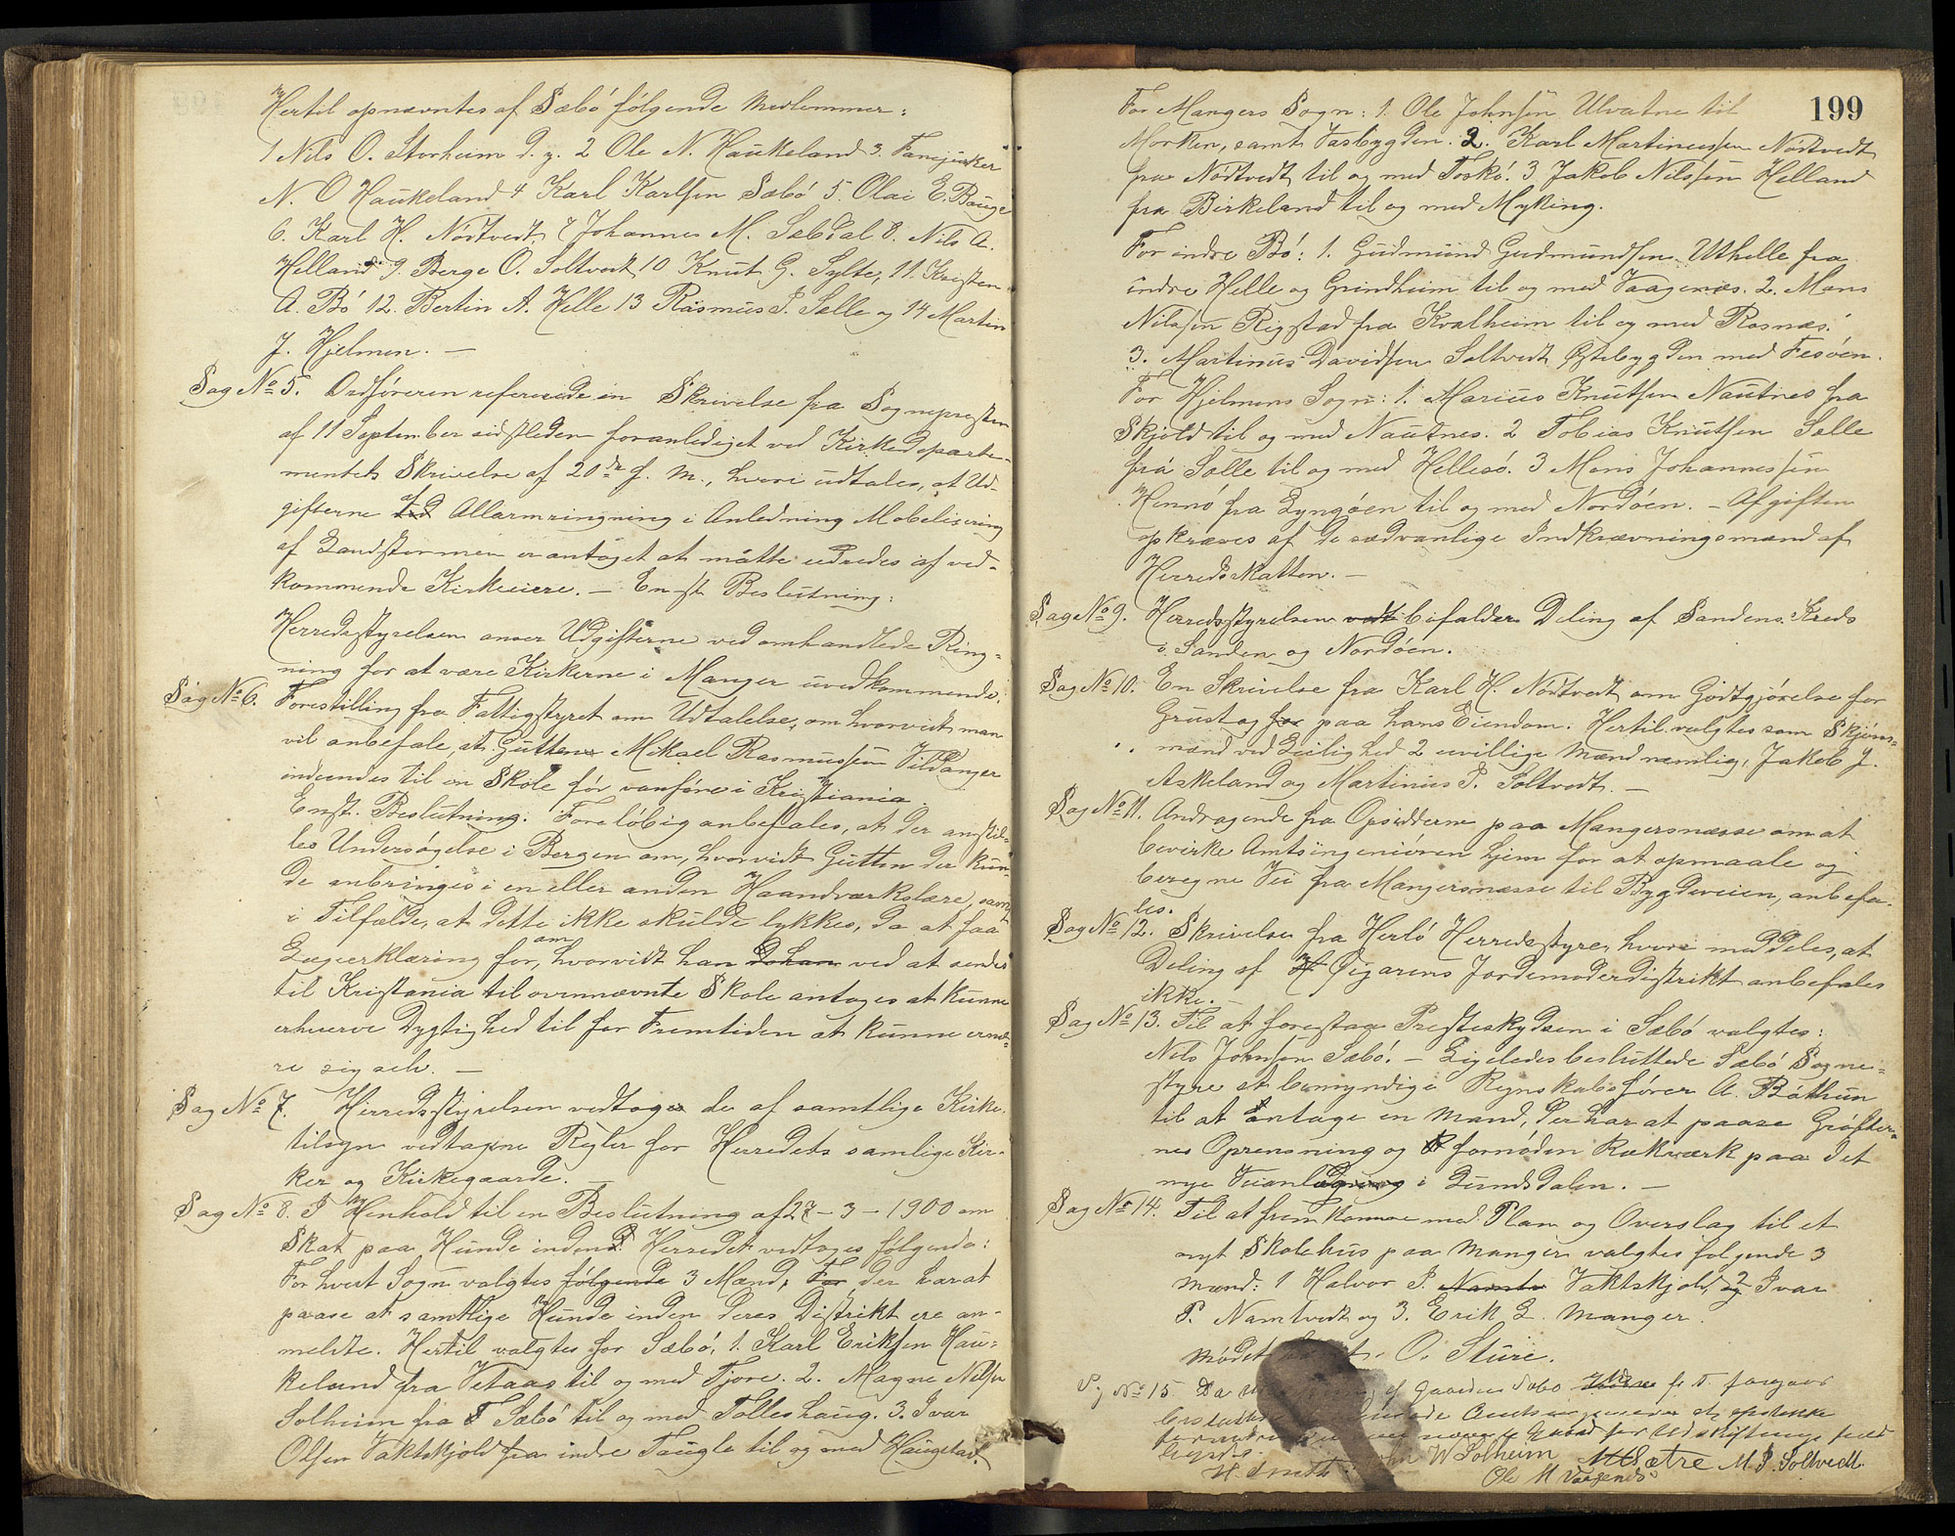 Hertil opnævntes af Sæbö fölgende Medlemmer:
1 Nils O. Storheim d. y. 2 Ole N. Haukeland 3. Fanejunker
N. O Haukeland 4 Karl Karlsen Sæbö 5. Olai E. Bauge
6. Karl H. Nödtvedt, 7 Johannes M. Sæbdal 8. Nils A.
Helland 9. Berge O. Soltvedt 10 Knut G. Sylte, 11. Kristen
A. Bö 12. Bertin A. Helle 13 Rasmus P. Sælle og 14 Martin
J. Hjelmen. —
Sag No 5. Ordföreren refererede en Skrivelse fra Sognepresten
af 11 September sidstleden foranlediget ved Kirkedeparte-
mentets Skrivelse af 20de f. M., hvori udtales, at Ud-
gifterne af Allarmringning i Anledning Mobelisering
af Landstormen er antaget at maatte udredes af ved-
kommende Kirkeeiere. — Enst Beslutning:
Herredsstyrelsen anser Udgifterne ved omhandlede Ring-
ning for at være Kirkerne i Manger uvedkommende.
Sag No 6. Forestilling fra Fattigstyret om Udtalelse, om hvorvidt man
vil anbefale, at Gutten Mikael Rasmussen Vildanger
indsendes til en Skole for vanföre i Kristiania.
Enst. Beslutning: Forelöbig anbefales, at der anstil-
les Undersögelse i Bergen om, hvorvidt Gutten der kun-
de anbringes i en eller anden Haandværkslære, samt
i Tilfælde, at dette ikke skulde lykkes, da at faa
Lægeerklæring for, om hvorvidt han ved at sendes
til Kristania til ovennævnte Skole antages at kunne
erhverve Dygtighed til for Fremtiden at kunne ernæ-
re sig selv. —
Sag No 7. Herredsstyrelsen vedtoges de af samtlige Kirke-
tilsyn vedtagne Regler for Herredets samlige Kir-
ker og Kirkegaarde. —
Sag No 8. I Henhold til en Beslutning af 27-3-1900 om
Skat paa Hunde inden Herredet vedtoges fölgende:
For hvert Sogn valgtes fölgende 3 Mænd, For der har at
paase at samtlige Hunde inden deres Distrikt ere an-
meldte. Hertil valgtes for Sæbö, 1. Karl Eriksen Hau-
keland fra Vetaas til og med Fjore. 2. Magne Nilsen
Solheim fra Sæbö til og med Tolleshaug. 3. Ivar
Olsen Vaktskjold fra indre Taugle til og med Haugstad.
199
For Mangers Sogn: 1. Ole Johnsen Ulvatne til
Morken, samt Vasbygden. 2. Karl Martinussen Nödtvedt
fra Nödtvedt til og med Toskö. 3 Jakob Nilssen Helland
fra Birkeland til og med Myking.
For indre Bö: 1. Gudmund Gudmundsen Uthelle fra
indre Helle og Grindheim til og med Vaagenes. 2. Mons
Nilssen Rigstad fra Kvalheim til og med Rosnæs.
3. Martinus Davidsen Soltvedt Östebygden med Fesöen.
For Hjelmens Sogn: 1. Marius Knutsen Nautnes fra
Skjold til og med Nautnes. 2 Tobias Knutsen Sælle
fra Sælle til og med Hellesö. 3 Mons Johannessen
Hennö fra Lyngöen til og med Nordöen. — Afgiften
opkræves af de sædvanlige Indkrævningsmænd af
Herredsskatten. —
Sag No 9. Herredsstyrelsen vedt bifalder Deling af Sandens Kreds
i Sanden og Nordöen.
Sag No 10. En Skrivelse fra Karl H. Nödtvedt om Godtgjörelse for
Grustag for paa hans Eiendom. Hertil valgtes som Skjöns-
mænd ved Leilighed 2 uvillige Mænd nemlig, Jakob J.
Askeland og Martinus P. Soltvedt. —
Sag No 11. Andragende fra Opsidderne paa Mangersnesse om at
bevirke Amtsingeniören hjem for at opmaale og
beregne Vei fra Mangersnesse til Bygdeveien, anbefa-
les.
Sag No 12. Skrivelse fra Herlö Herredsstyre, hvori meddeles, at
Deling af Öigarens Jordemoderdistrikt anbefales
ikke. —
Sag No 13. Til at forestaa Presteskydsen i Sæbö valgtes:
Nils Johnsen Sæbö. — Ligeledes besluttede Sæbö Sogne-
styre at bemyndige Regnskabsförer A. Böthun
til at antage en Mand, der har at paase Gröfter-
nes Oprensning og fornöden Rækværk paa det
nye Veianlæg i Lundsdalen. —
Sag No 14. Til at fremkomme med Plan og Overslag til et
nyt Skolehus paa Manger valgtes fölgende 3
Mænd: 1 Halvor P. Namtv Vaktskjold, 2 Ivar
P. Namtvedt og 3. Erik L. Manger.
Mödet O. Sture.
No 15. Da
H. Smith John W Solheim M Sætre M. P. Soltvedt
Ole M Vaagenes